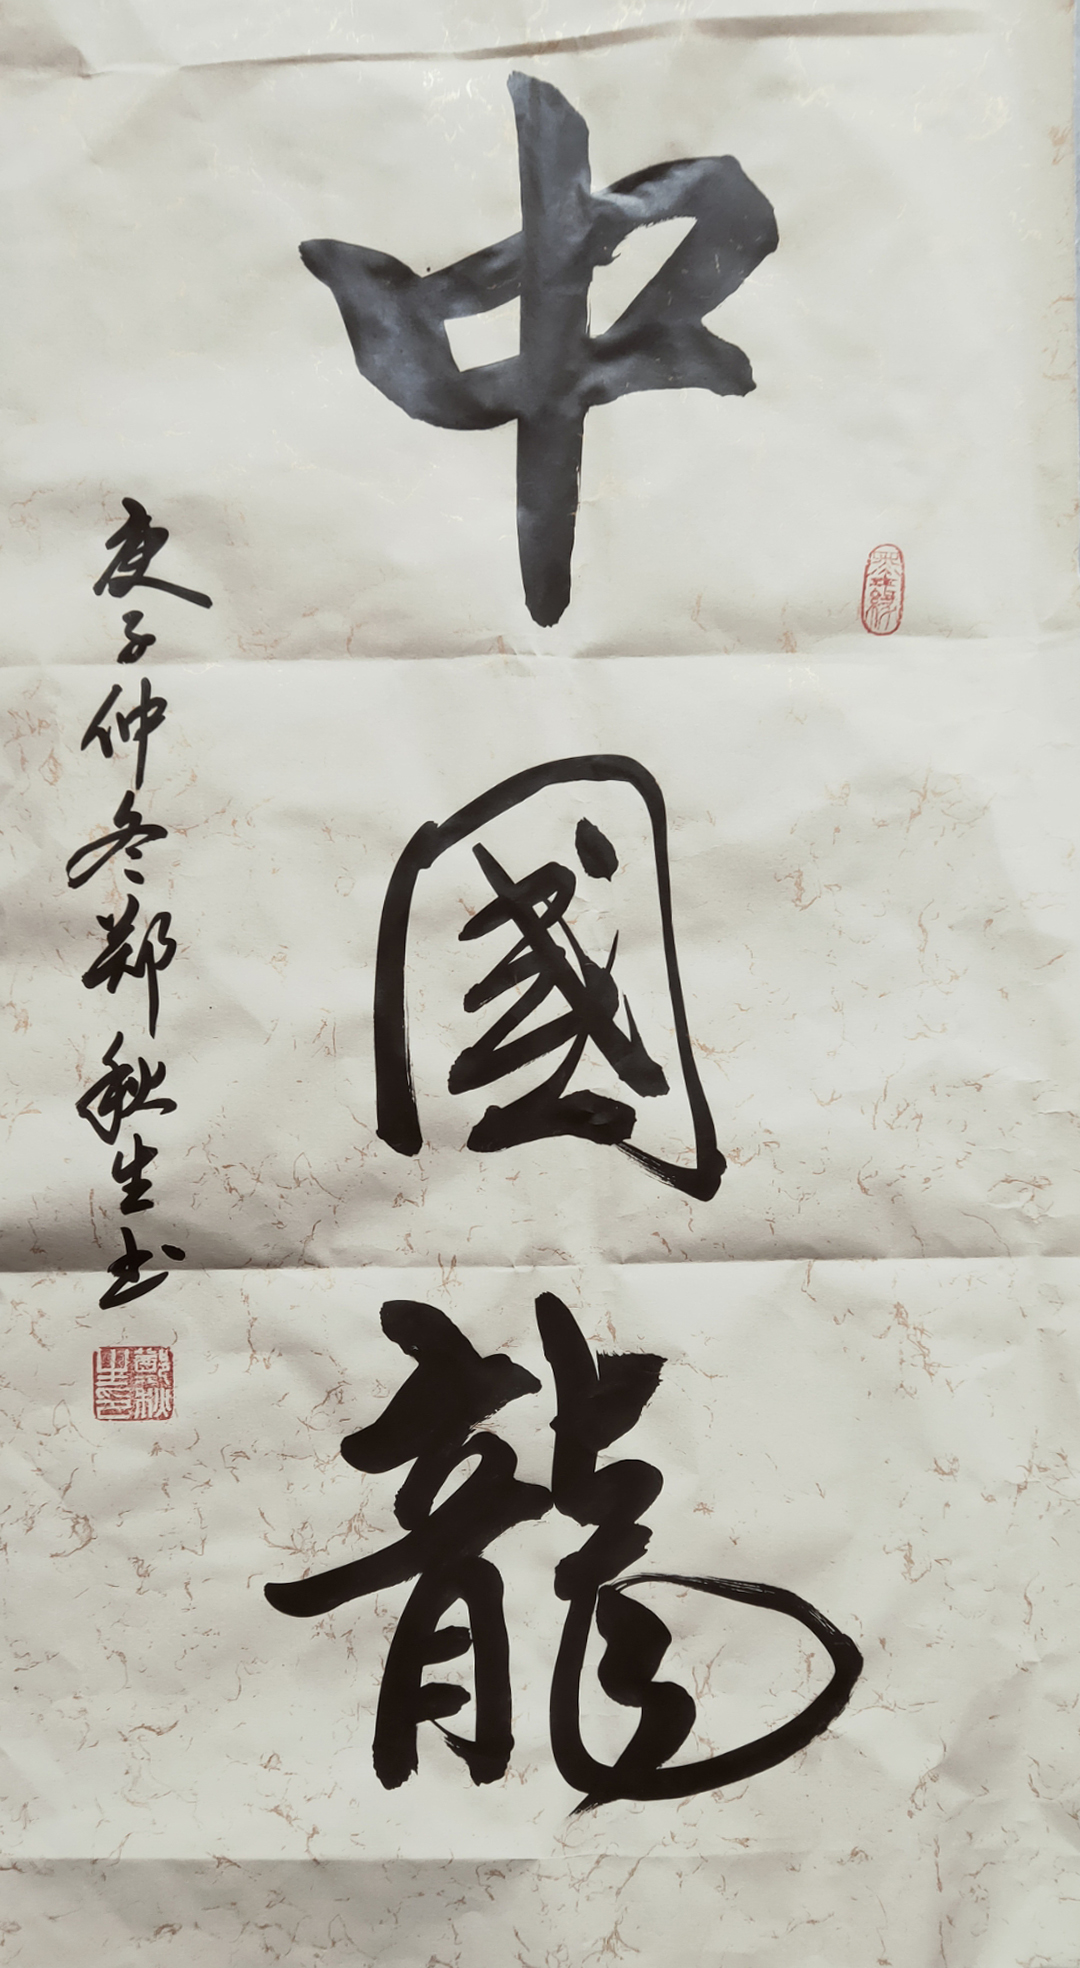 中國龍
庚子仲冬郑秋生书
鄭秋生印